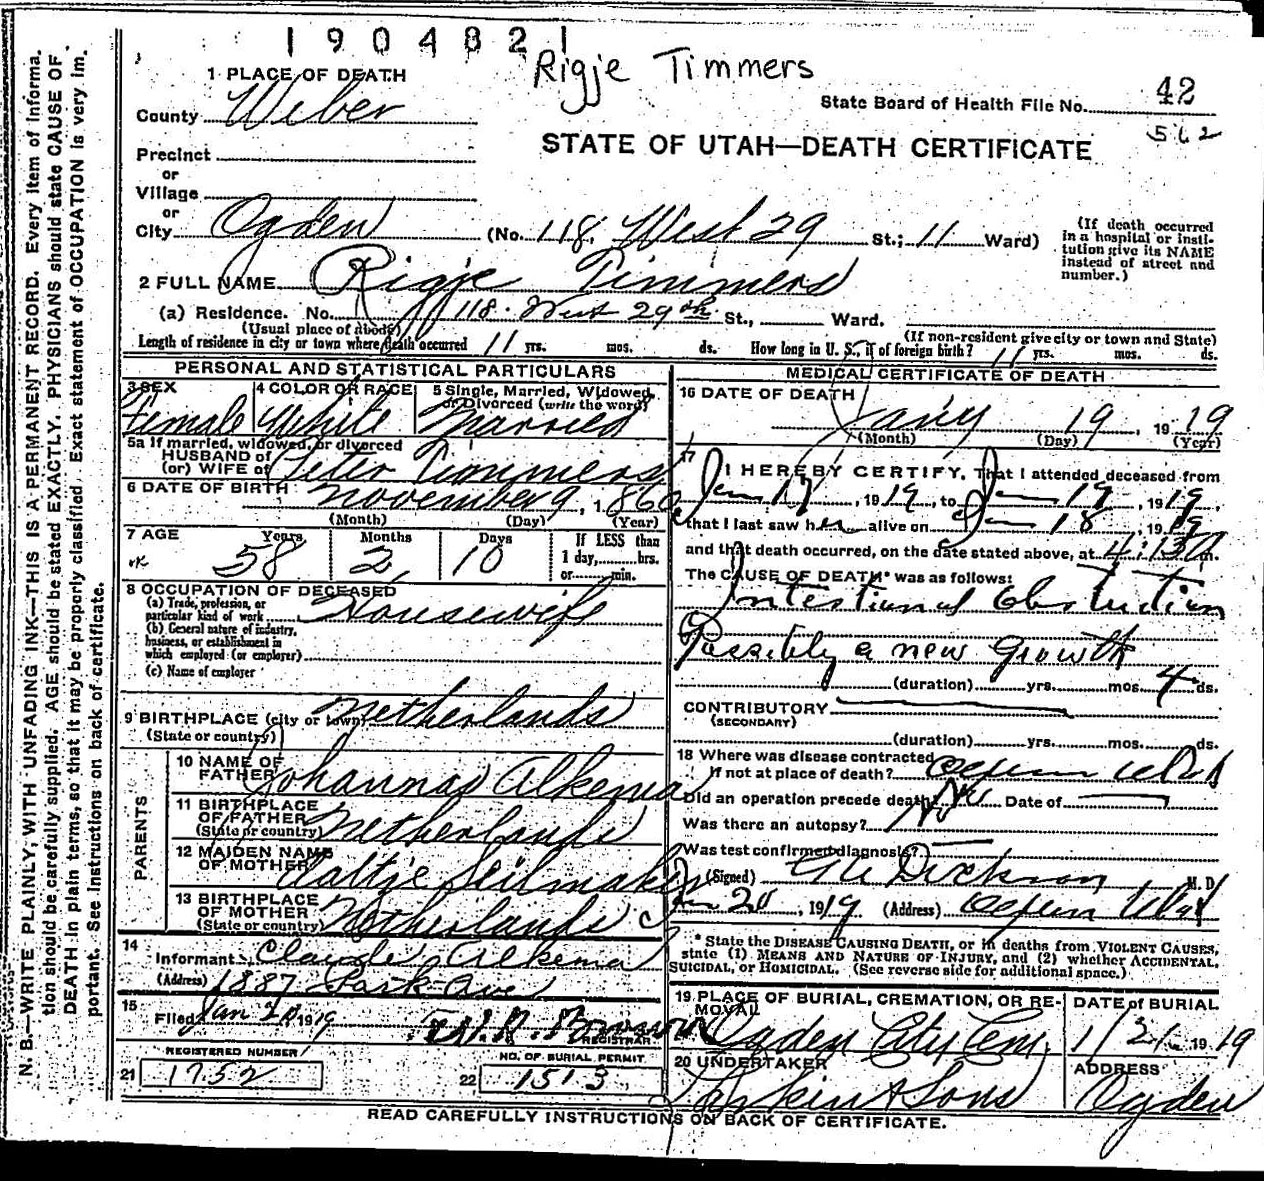 1904821
Rigje Timmers
1 PLACE OF DEATH
County Weber
State Board of Health File No. 42
562
Precinct
or
Village
or
STATE OF UTAH—DEATH CERTIFICATE
City Ogden (No. 118. West 29 St.; 11 Ward)
(If death occurred in a hospital or insti-
tution give its NAME
instead of street and
number.)
2 FULL NAME Rigje Timmers
(a) Residence. No. 118. West 29th St., Ward.
(Usual place of abode)
(If non-resident give city or town and State)
Length of residence in city or town where death occurred 11 yrs. mos. ds. How long in U. S., if of foreign birth? 11 yrs. mos. ds.
PERSONAL AND STATISTICAL PARTICULARS
3 SEX Female
4 COLOR OR RACE White
5 Single, Married, Widowed, or Divorced (write the word) Married
5a If married, widowed, or divorced
HUSBAND of
(or) WIFE of Peter Timmers
6 DATE OF BIRTH November 9, 1860
(Month) (Day) (Year)
7 AGE Years Months Days If LESS than
1 day, hrs.
or min.
58 2 10
8 OCCUPATION OF DECEASED
(a) Trade, profession, or
particular kind of work Housewife
(b) General nature of industry,
business, or establishment in
which employed (or employer)
(c) Name of employer
9 BIRTHPLACE (city or town) Netherlands
(State or country)
PARENTS
10 NAME OF
FATHER Johannas Alkema
11 BIRTHPLACE
OF FATHER
(State or country) Netherlands
12 MAIDEN NAME
OF MOTHER
13 BIRTHPLACE
OF MOTHER
(State or country) Netherlands
14
Informant Claude Alkema
(Address) 1887 Park Ave
15
Filed Jan 20 1919
REGISTRAR
REGISTERED NUMBER
21 1752
NO. OF BURIAL PERMIT
22 1513
MEDICAL CERTIFICATE OF DEATH
16 DATE OF DEATH
Jany 19, 1919
(Month) (Day) (Year)
17
I HEREBY CERTIFY, That I attended deceased from
Jan 17, 1919, to Jan 19, 1919,
that I last saw her alive on Jan 18, 1919
and that death occurred, on the date stated above, at 4:30 m.
The CAUSE OF DEATH* was as follows:
Intestional Obstuction
Possibly a new Growth
(duration) yrs. mos. 4 ds.
CONTRIBUTORY
(SECONDARY)
(duration) yrs. mos. ds.
18 Where was disease contracted
If not at place of death? Ogden Utah
Did an operation precede death? No Date of
Was there an autopsy?
Was test confirmed diagnosis?
(Signed) Dickson M. D.
Jan 20, 1919 (Address) Ogden Utah
* State the DISEASE CAUSING DEATH, or in deaths from VIOLENT CAUSES,
state (1) MEANS AND NATURE OF INJURY, and (2) whether ACCIDENTAL,
SUICIDAL, or HOMICIDAL. (See reverse side for additional space.)
19 PLACE OF BURIAL, CREMATION, OR RE-
MOVAL
Ogden City Cem.
DATE of BURIAL
1/21 1919
20 UNDERTAKER
Larkin & Sons
ADDRESS
Ogden
READ CAREFULLY INSTRUCTIONS ON BACK OF CERTIFICATE.
N. B.—WRITE PLAINLY, WITH UNFADING INK—THIS IS A PERMANENT RECORD. Every item of informa-
tion should be carefully supplied. AGE should be stated EXACTLY. PHYSICIANS should state CAUSE OF
DEATH in plain terms, so that it may be properly classified. Exact statement of OCCUPATION is very im-
portant. See instructions on back of certificate.